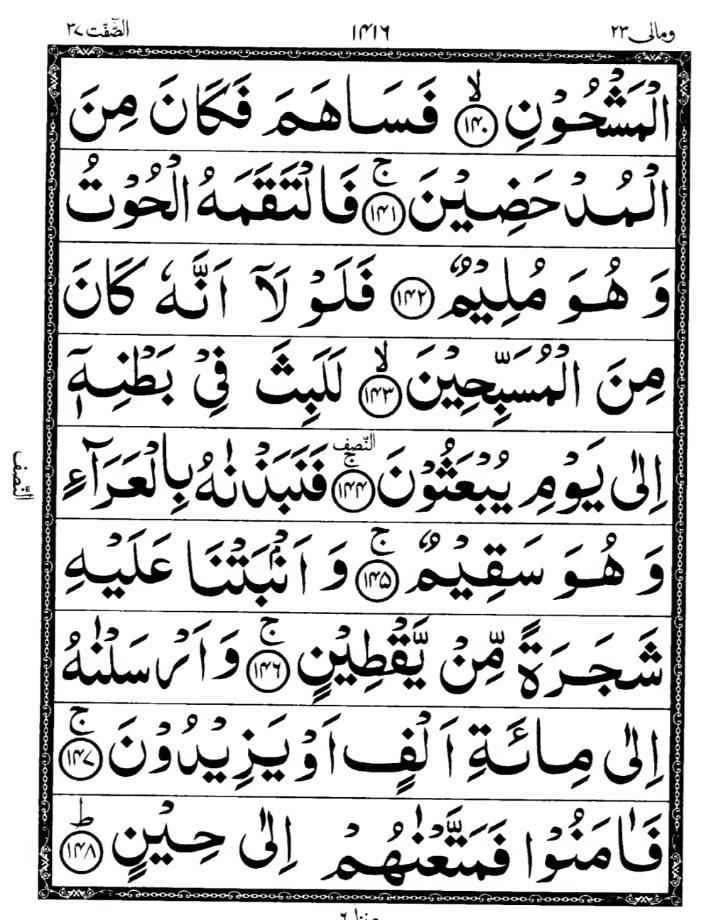 ومالی ۲۳ ۱۴۱۶ الصّٰٓفّٰت ۳۷
الْمَشْحُوْنِ ۙ﴿۱۴۰﴾ فَسَاهَمَ فَكَانَ مِنَ
الْمُدْحَضِيْنَ ۚ﴿۱۴۱﴾ فَالْتَقَمَهُ الْحُوْتُ
وَ هُوَ مُلِيْمٌ ﴿۱۴۲﴾ فَلَوْ لَاۤ اَنَّهٗ كَانَ
مِنَ الْمُسَبِّحِيْنَ ۙ﴿۱۴۳﴾ لَلَبِثَ فِيْ بَطْنِهٖۤ
اِلٰى يَوْمِ يُبْعَثُوْنَ ۚ﴿۱۴۴﴾ النّصف فَنَبَذْنٰهُ بِالْعَرَآءِ
النّصف
وَ هُوَ سَقِيْمٌ ۚ﴿۱۴۵﴾ وَ اَنْۢبَتْنَا عَلَيْهِ
شَجَرَةً مِّنْ يَّقْطِيْنٍ ۚ﴿۱۴۶﴾ وَ اَرْسَلْنٰهُ
اِلٰى مِائَةِ اَلْفٍ اَوْ يَزِيْدُوْنَ ۚ﴿۱۴۷﴾
فَاٰمَنُوْا فَمَتَّعْنٰهُمْ اِلٰى حِيْنٍ ؕ﴿۱۴۸﴾
منزل ۶